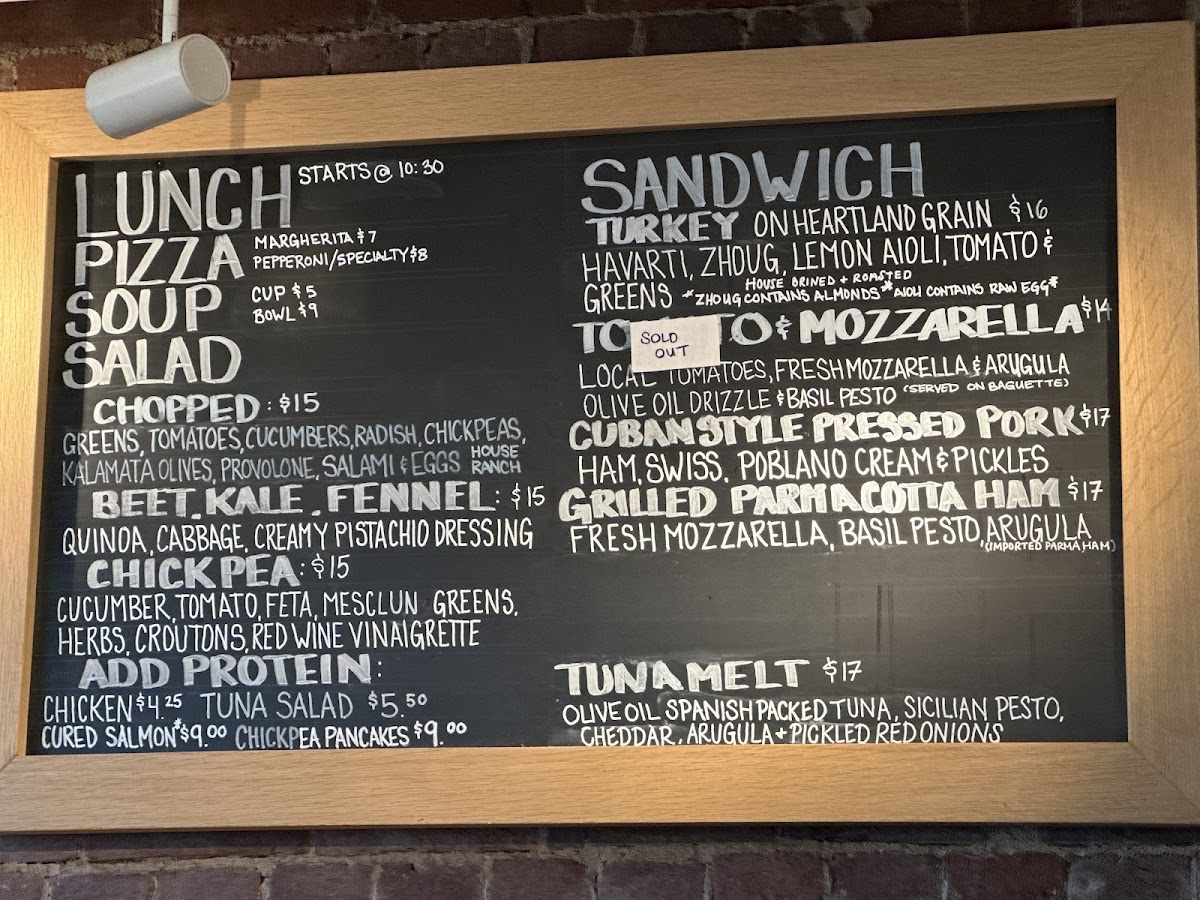 LUNCH STARTS @ 10:30
PIZZA MARGHERITA $7
PEPPERONI/SPECIALTY $8
SOUP CUP $5
BOWL $9
SALAD
CHOPPED: $15
GREENS, TOMATOES, CUCUMBERS, RADISH, CHICKPEAS,
KALAMATA OLIVES, PROVOLONE, SALAMI & EGGS HOUSE RANCH
BEET. KALE. FENNEL: $15
QUINOA, CABBAGE, CREAMY PISTACHIO DRESSING
CHICKPEA: $15
CUCUMBER, TOMATO, FETA, MESCLUN GREENS,
HERBS, CROUTONS, RED WINE VINAIGRETTE
ADD PROTEIN:
CHICKEN $4.25 TUNA SALAD $5.50
CURED SALMON* $9.00 CHICKPEA PANCAKES $9.00
SANDWICH
TURKEY ON HEARTLAND GRAIN $16
HAVARTI, ZHOUG, LEMON AIOLI, TOMATO &
HOUSE BRINED + ROASTED
GREENS *ZHOUG CONTAINS ALMONDS* AIOLI CONTAINS RAW EGG*
TO O & MOZZARELLA $14
SOLD
OUT
LOCAL TOMATOES, FRESH MOZZARELLA & ARUGULA
OLIVE OIL DRIZZLE & BASIL PESTO (SERVED ON BAGUETTE)
CUBAN STYLE PRESSED PORK $17
HAM, SWISS, POBLANO CREAM & PICKLES
GRILLED PARMACOTTA HAM $17
FRESH MOZZARELLA, BASIL PESTO, ARUGULA
(IMPORTED PARMA HAM)
TUNA MELT $17
OLIVE OIL SPANISH PACKED TUNA, SICILIAN PESTO,
CHEDDAR, ARUGULA + PICKLED RED ONIONS